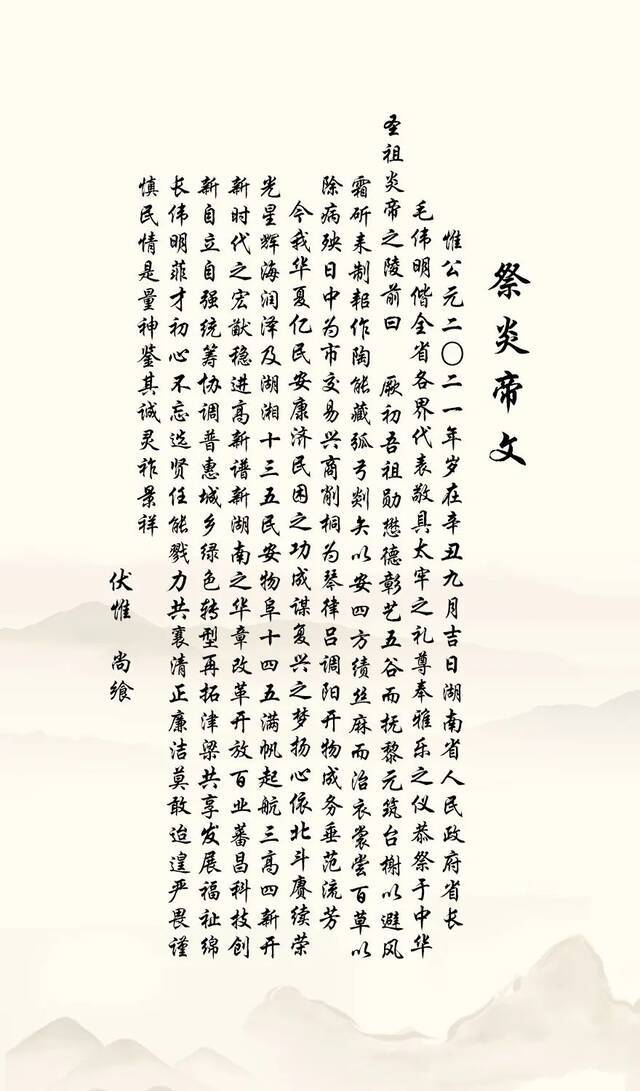 祭炎帝文
惟公元二〇二一年岁在辛丑九月吉日湖南省人民政府省长
毛伟明偕全省各界代表敬具太牢之礼尊奉雅乐之仪恭祭于中华
圣祖炎帝之陵前曰 厥初吾祖勋懋德彰艺五谷而抚黎元筑台榭以避风
霜斫耒制耜作陶能藏弧弓剡矢以安四方绩丝麻而治衣裳尝百草以
除病殃日中为市交易兴商削桐为琴律吕调阳开物成务垂范流芳
今我华夏亿民安康济民困之功成谋复兴之梦扬心依北斗赓续荣
光星辉海润泽及湖湘十三五民安物阜十四五满帆起航三高四新开
新时代之宏猷稳进高新谱新湖南之华章改革开放百业蕃昌科技创
新自立自强统筹协调普惠城乡绿色转型再拓津梁共享发展福祉绵
长伟明菲才初心不忘选贤任能戮力共襄清正廉洁莫敢迨遑严畏谨
慎民情是量神鉴其诚灵祚景祥
伏惟 尚飨